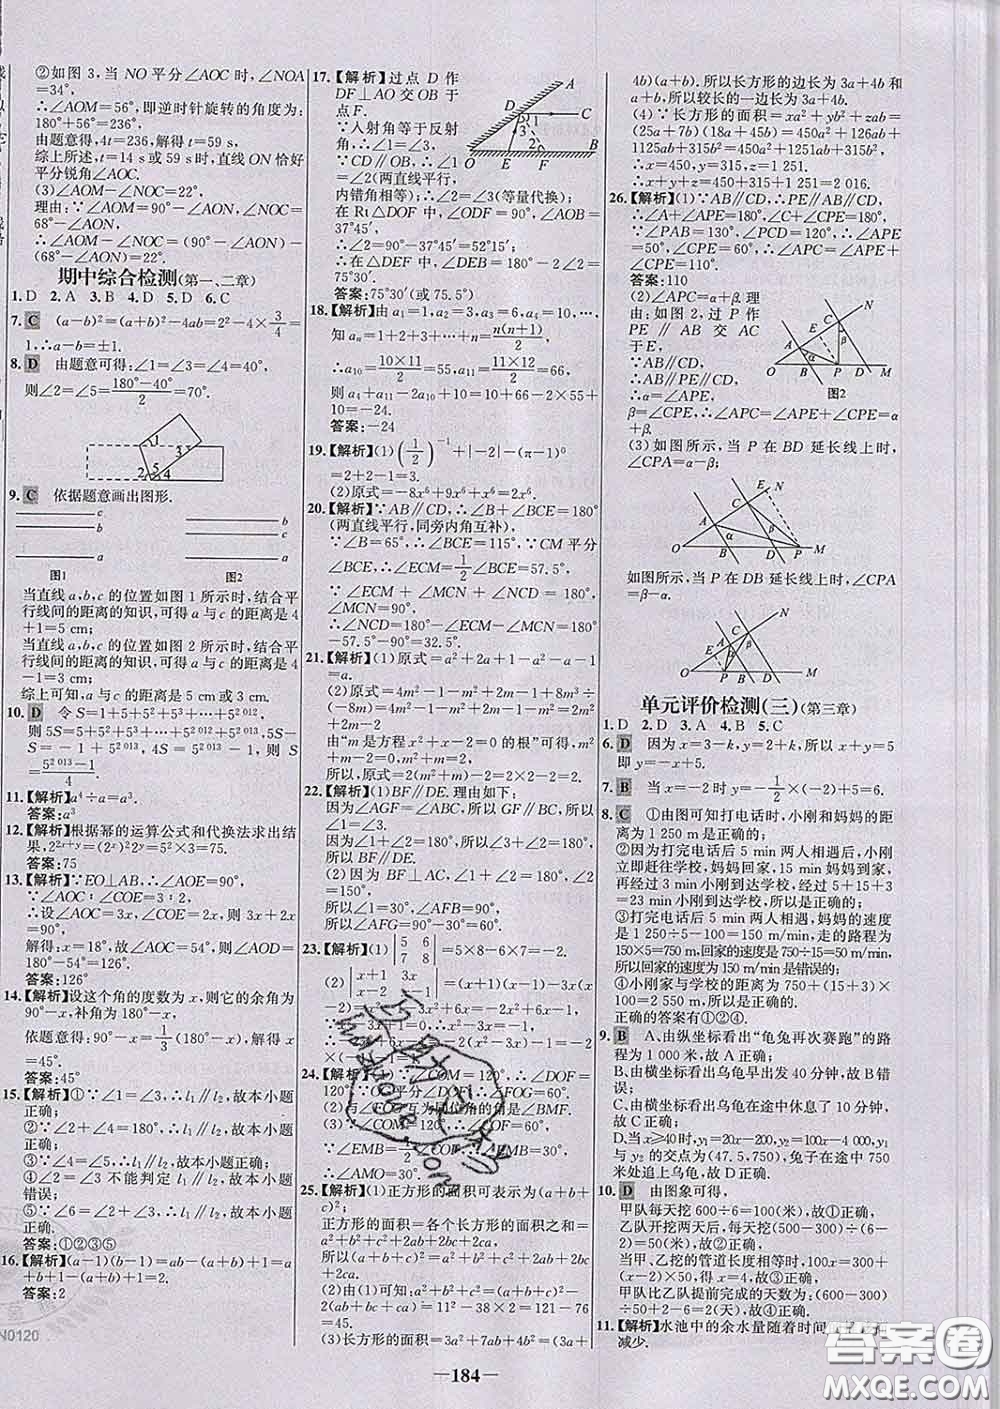 ②如图 3,当 NO 平分∠AOC 时,∠NOA
=34°,
∴∠AOM=56°,即逆时针旋转的角度为:
180°+56°=236°,
由题意得,4t=236,解得 t=59,
综上所述,t=14 s 或 59 s时,直线 ON 恰好
平分锐角∠AOC.
(3)∠AOM-∠NOC=22°.
理由:∵∠AOM=90°-∠AON,∠NOC=
68°-∠AON,
∴∠AOM-∠NOC=(90°-∠AON)-
(68°-∠AON)=22°.
期中综合检测(第一、二章)
1.D 2.A 3.B 4.D 5.D 6.C
7. C (a-b)²=(a+b)²-4ab=2²-4×3/4=
1,∴a-b=±1.
8. D 由题意可得:∠1=∠3=∠4=40°,
则∠2=∠5=(180°-40°)/2=70°.
1
3
2 5 4
9. C 依据题意画出图形.
c b
b c
a a
图1 图2
当直线 a,b,c 的位置如图 1 所示时,结合平
行线间的距离的知识,可得 a 与 c 的距离是 4
+1=5 cm;
当直线 a,b,c 的位置如图 2 所示时,结合平
行线间的距离的知识,可得 a 与 c 的距离是
4-1=3 cm;
综上可知,a 与 c 的距离是 5 cm 或 3 cm.
10. D 令 S=1+5+5²+5³+…+5²⁰¹²,
则 5S=5+5²+5³+…+5²⁰¹²+5²⁰¹³,5S-
S=-1+5²⁰¹³,4S=5²⁰¹³-1,则 S=
(5²⁰¹³-1)/4.
11.【解析】a⁴÷a=a³.
答案:a³
12.【解析】根据幂的运算公式和代换法求出结
果,2²ˣ⁺ʸ=(2ˣ)²2ʸ=5²×3=75.
答案:75
13.【解析】∵EO⊥AB,∴∠AOE=90°,
∵∠AOC∶∠COE=3∶2,
∴设∠AOC=3x,∠COE=2x,则3x+2x=
90°,
解得:x=18°,故∠AOC=54°,则∠AOD=
180°-54°=126°.
答案:126°
14.【解析】设这个角的度数为 x,则它的余角为
90°-x,补角为 180°-x,
依题意得:90°-x=1/3(180°-x),解得 x
=45°.
答案:45°
15.【解析】①∵∠1=∠2,∴l₁∥l₂,故本小题
正确;
②∵∠2+∠4=180°,∴l₁∥l₂,故本小题正
确;
③∵∠4=∠5,∴l₁∥l₂,故本小题正确;
④∠2=∠3 不能判定 l₁∥l₂,故本小题
错误;
⑤∵∠6=∠2+∠3,∴l₁∥l₂,故本小题
正确.
答案:①②③⑤
16.【解析】(a-1)(b-1)=ab-(a+b)+1=a
+b+1-(a+b)+1=2.
答案:2
N0120
17.【解析】过点 D 作
DF⊥AO 交 OB 于
点F.
∵入射角等于反射
角,∴∠1=∠3,
∵CD∥OB,∴∠1
=∠2(两直线平行,
内错角相等);
∴∠2=∠3(等量代换);
在 Rt△DOF 中,∠ODF=90°,∠AOB=
37°45′,
∴∠2=90°-37°45′=52°15′;
∴在△DEF 中,∠DEB=180°-2∠2=
75°30′.
答案:75°30′(或 75.5°)
A
D
C
1
3
2
O E F B
18.【解析】由 a₁=1,a₂=3,a₃=6,a₄=10,…,
知 aₙ=1+2+3+…+n=n(n+1)/2,
∴a₁₀=(10×11)/2=55,a₁₁=(11×12)/2=66,
则 a₄+a₁₁-2a₁₀+10=10+66-2×55+
10=-24.
答案:-24
19.【解析】(1)(1/2)⁻¹+|-2|-(π-1)⁰
=2+2-1=3.
(2)原式=-8x⁶+9x⁶+x⁶=2x⁶.
20.【解析】∵AB∥CD,∴∠B+∠BCE=180°
(两直线平行,同旁内角互补),
∵∠B=65°,∴∠BCE=115°,∵CM 平分
∠BCE,∴∠ECM=1/2∠BCE=57.5°,
∵∠ECM+∠MCN+∠NCD=180°,
∠MCN=90°,
∴∠NCD=180°-∠ECM-∠MCN=180°
-57.5°-90°=32.5°.
21.【解析】(1)原式=a²+2a+1-a²-a-1
=a.
(2)原式=4m²-1-4m²+1-8m³+8m²
+4m-1+8m³-6m²-6m=2m²-2m-1=
2(m²-m)-1,
由“m 是方程 x²+x-2=0 的根”可得,m²
+m-2=0,
所以,原式=2(m²+m)-4=2×2-4=0.
22.【解析】(1)BF∥DE.理由如下:
因为∠AGF=∠ABC,所以 GF∥BC,所以
∠1=∠3.
因为∠1+∠2=180°,所以∠3+∠2=180°,
所以 BF∥DE.
(2)因为 BF⊥AC,∠1+∠2=180°,∠2=
150°,
所以∠1=30°,∠AFB=90°,
所以∠AFG=90°-30°=60°.
23.【解析】(1)|5 6 7 8|=5×8-6×7=-2.
(2)|x+1 3x x-2 x-1|=(x+1)(x-1)-3x(x
-2)=x²-1-3x²+6x=-2x²+6x-1,
24.【解析】
(3)∵∠COM=120°,∴∠COF=60°,
25.【解析】(1)正方形的面积可表示为(a+b+
c)²;
正方形的面积=各个矩形的面积之和=
a²+b²+c²+2ab+2bc+2ca,
所以(a+b+c)²=a²+b²+c²+2ab+2bc+2ca.
(2)由(1)可知:a²+b²+c²=(a+b+c)²-
2(ab+bc+ca)=11²-38×2=121-76
=45.
(3)长方形的面积=3a²+7ab+4b²=(3a+
4b)(a+b).所以长方形的边长为 3a+4b 和
a+b,所以较长的一边长为 3a+4b.
(4)∵长方形的面积=xa²+yb²+zab=
(25a+7b)(18a+45b)=450a²+126ab+
1125ab+315b²=450a²+1251ab+315b²,
∴x=450,y=315,z=1 251.
∴x+y+z=450+315+1 251=2 016.
26.【解析】(1)∵AB∥CD,∴PE∥AB∥CD,
∴∠A+∠APE=180°,∠C+∠CPE=180°,
∵∠PAB=130°,∠PCD=120°,∴∠APE=
50°,∠CPE=60°,∴∠APC=∠APE+
∠CPE=110°.
答案:110
(2)∠APC=α+β.理
由:如图 2,过 P 作
PE∥AB 交 AC
于E,
∵AB∥CD,
∴AB∥PE∥CD,
∴∠α=∠APE,β=
∠CPE,∴∠APC=∠APE+∠CPE=α+
β.
N
C
E
A
β
α
O B P D M
图2
(3)如图所示,当 P 在 BD 延长线上时,
∠CPA=α-β;
E N
C
A
β
α
O B D P M
如图所示,当 P 在 DB 延长线上时,∠CPA
=β-α.
N
C
A
E
O P B D M
单元评价检测(三)(第三章)
1.D 2.D 3.A 4.B 5.C
6. D 因为 x=3-k,y=2+k,所以 x+y=5
即 y=-x+5.
7. B 当 x=-2 时 y=-1/2×(-2)+5=6.
8. C ①由图可知打电话时,小刚和妈妈的距
离为 1 250 m 是正确的;
②因为打完电话后 5 min 两人相遇后,小刚
立即赶往学校,妈妈回家,妈妈走了 15 min,
再经过 3 min 小刚到达学校,经过 5+15+3
=23 min 小刚到达学校,所以是正确的;
③打完电话后 5 min 两人相遇,妈妈的速度
是 1 250÷5-100=150 m/min,走的路程为
150×5=750 m,回家的速度是 750÷15=50(m/min),
所以回家的速度为 150 m/min 是错误的;
④小刚家与学校的距离为 750+(15+3)×
100=2 550 m,所以是正确的.
正确的答案有①②④.
9. B A.由纵坐标看出“龟兔再次赛跑”的路
程为 1 000 米,故 A 正确;
B.由横坐标看出乌龟早出发 40 分钟,故 B
错误;
C.由横坐标看出乌龟在途中休息了 10 分钟,
故 C 正确;
D.当 x≥40时,y₁=20x-200,y₂=100x-4 000,y₁
与 y₂ 的交点为(47.5,750),兔子在途中 750米
处追上乌龟,故 D 正确.
10. D 由图象可得,
甲队每天挖600÷6=100(米),故①正确;
乙队开挖两天后,每天挖(500-300)÷(6-
2)=50(米),故②正确;
当甲、乙挖的管道长度相等时,100x=300+
(x-2)×50,得 x=4,故③正确;
甲队比乙队提前完成的天数为(600-300)
÷50+2-6=2(天),故④正确.
11.【解析】水池中的余水量随着时间
减少.
—184—
答案圈
MXQE.COM